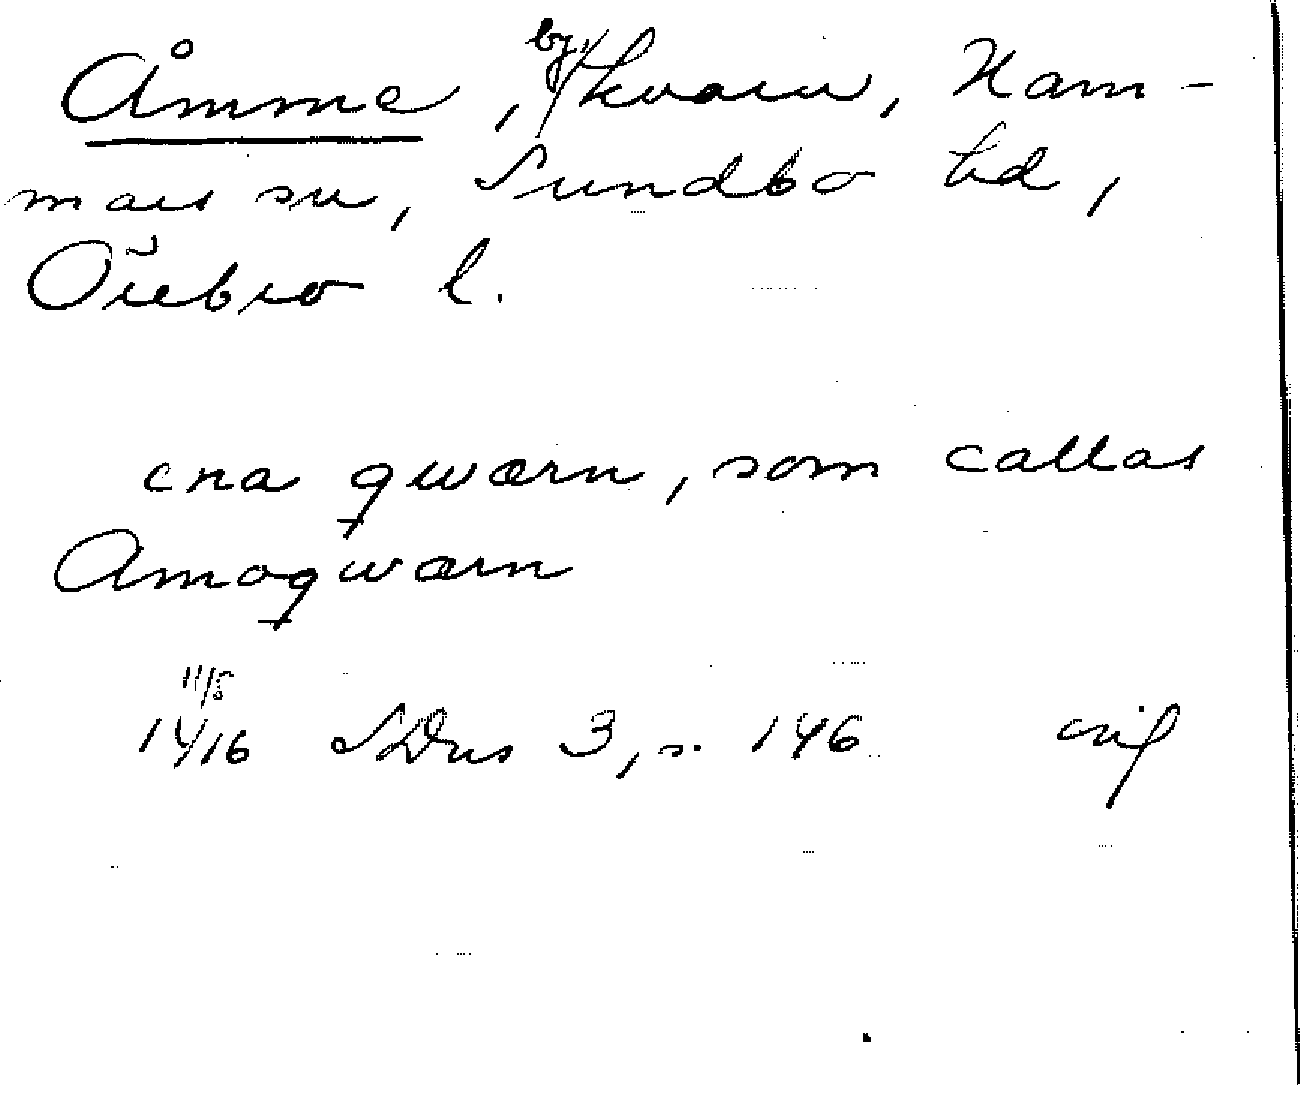 Åmme, by, kvarn, Ham-
mars sn, Sundbo hd,
Örebro l.
ena qwærn, som callas
Amoqwærn
11/5
1416 SDns 3, s. 146 orig